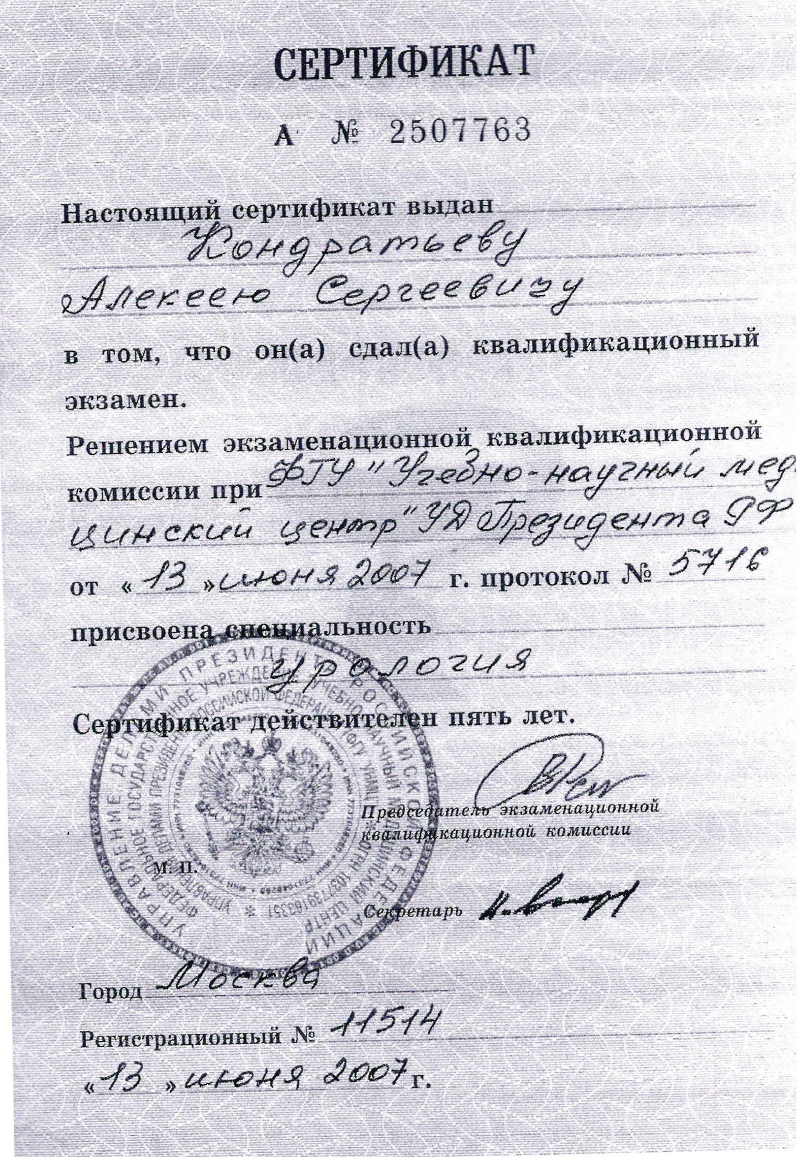 СЕРТИФИКАТ
А № 2507763
Настоящий сертификат выдан
Кондратьеву
Алексею Сергеевичу
в том, что он(а) сдал(а) квалификационный
экзамен.
Решением экзаменационной квалификационной
комиссии при ФГУ "Учебно-научный меди
цинский центр" УД Президента РФ
от « 13 » июня 2007 г. протокол № 5716
присвоена специальность
урология
Сертификат действителен пять лет.
УПРАВЛЕНИЕ ДЕЛАМИ ПРЕЗИДЕНТА РОССИЙСКОЙ ФЕДЕРАЦИИ
Председатель экзаменационной
квалификационной комиссии
М. П.
Секретарь
Город Москва
Регистрационный № 11514
« 13 » июня 2007 г.